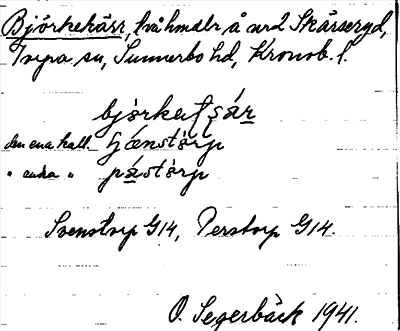 Björkekärr, två hmdlr å nr 2 Skärseryd,
Torpa sn, Sunnerbo hd, Kronob. l.
björkeʃʂär
den ena kall. sjænstòrp
" andra " pástòrp
Svenstorp G14, Perstorp G14.
O. Segerbäck 1941.